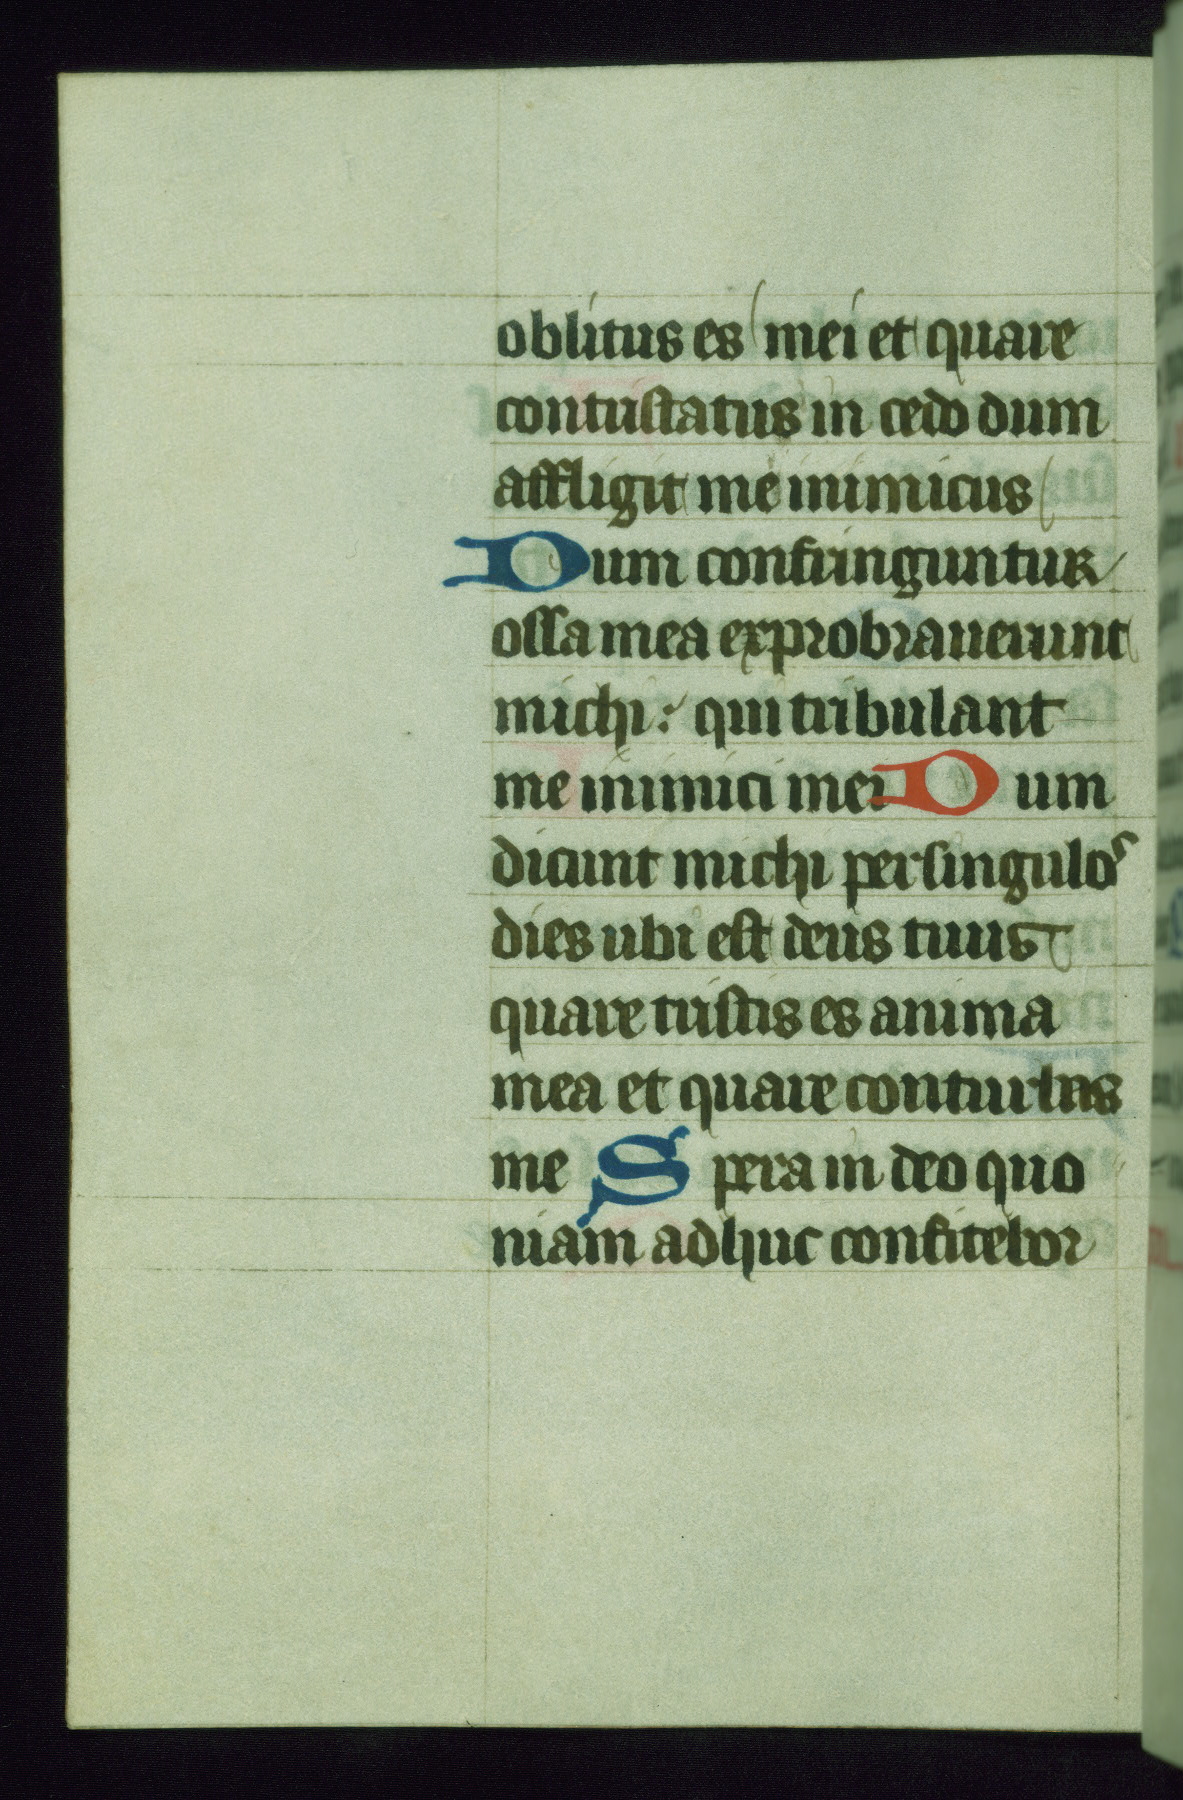 oblitus es mei et quare
contristatus in cedo dum
affligit me inimicus
Dum confringuntur
ossa mea exprobrauerunt
michi: qui tribulant
me inimici mei Dum
dicunt michi per singulos
dies ubi est deus tuus
quare tristis es anima
mea et quare conturbas
me Spera in deo quo
niam adhuc confitebor